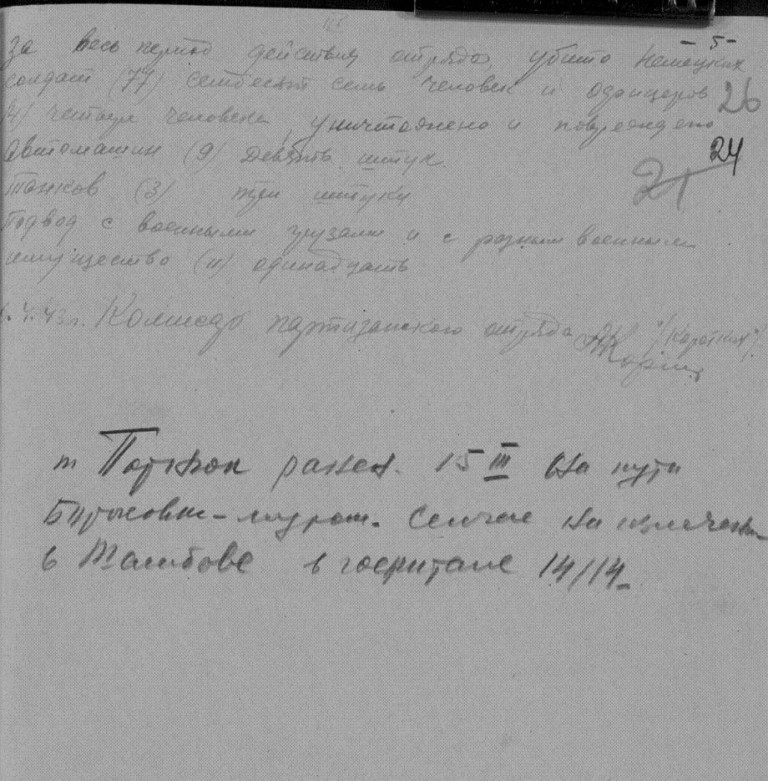 - 5 -
За весь период действия отряда, убито немецких
солдат (77) семдесят семь человек и офицеров 26
4) четыре человека, уничтожено и повреждено
Автомашин (9) девять штук. 24
Танков (3) три штуки 21
Подвод с военными грузами и с разным военным
имущество (11) одинадцать
4.43г. Комиссар партизанского отряда /Коротких/
т ранен. 15 III на пути
Сейчас на излечении
в Тамбове в госпитале 14/14